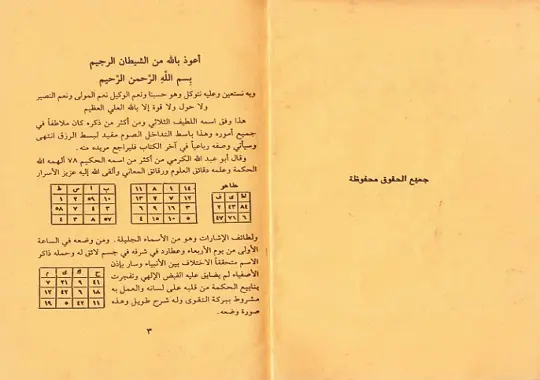 أعوذ بالله من الشيطان الرجيم
بسم الله الرّحمن الرّحيم
وبه نستعين وعليه نتوكل وهو حسبنا ونعم الوكيل نعم المولى ونعم النصير
ولا حول ولا قوة إلا بالله العلي العظيم
هذا وفق اسمه اللطيف الثلاثي ومن أكثر من ذكره كان ملاطفاً في
جميع أموره وهذا باسط التداخل الصوم مفيد لبسط الرزق انتهى
وسيأتي وصفه رباعياً في آخر الكتاب فليراجع مريده منه.
وقال أبو عبد الله الكرمي من أكثر من اسمه الحكيم ٧٨ ألهمه الله
الحكمة وعلمه دقائق العلوم ورقائق المعاني وألقى الله إليه عزيز الأسرار
هذا هو
ب ا س ط
١٤ ١ ٨ ١١
١٠ ٥٩ ٢ ١
٨٤ ٤٣ ٢
١٢ ٧ ٢ ١٣
٣ ٤ ٧ ٥٨
٦ ٧١ ٤٧
٣ ١٦ ٩ ٦
٥٧ ٨ ٣ ٤
٥ ١٠ ١٥ ٤
ولطائف الإشارات وهو من الأسماء الجليلة. ومن وضعه في الساعة
الأولى من يوم الأربعاء وعطارد في شرفه في جسم لائق له وحمله ذاكر
الاسم متحققاً الاختلاف بين الأنبياء وسار بإذن
الأصفياء لم يضايق عليه القبض الإلهي وتفجرت
ينابيع الحكمة من قلبه على لسانه والعمل به
مشروط ببركة التقوى وله شرح طويل وهذه
صورة وضعه.
ح ك ى م
٤١ ٩ ٢١ ٧
١٨ ٦ ٤٢ ١٢
١١ ٤٢ ٥ ١٩
٣
جميع الحقوق محفوظة